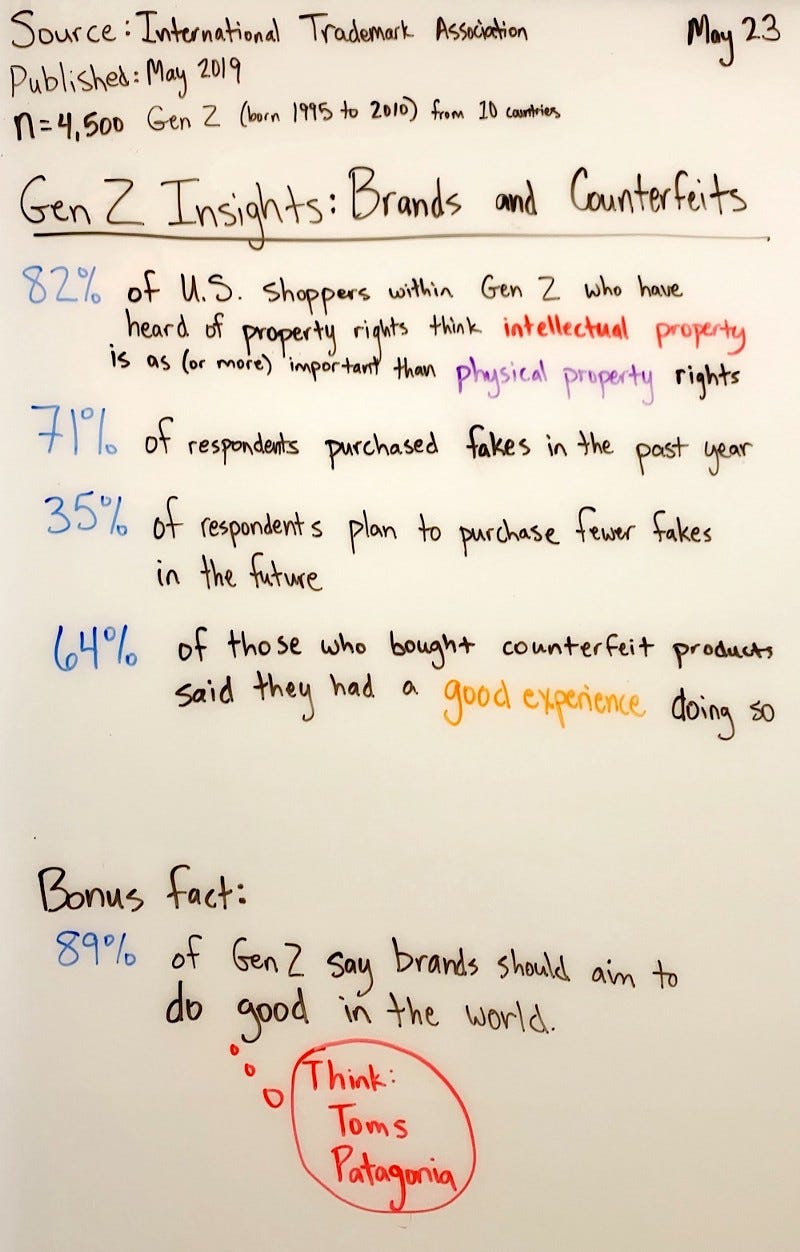 Source: International Trademark Association
May 23
Published: May 2019
n=4,500 Gen Z (born 1995 to 2010) from 10 countries
Gen Z Insights: Brands and Counterfeits
82% of U.S. shoppers within Gen Z who have
heard of property rights think intellectual property
is as (or more) important than physical property rights
71% of respondents purchased fakes in the past year
35% of respondents plan to purchase fewer fakes
in the future
64% of those who bought counterfeit products
said they had a good experience doing so
Bonus fact:
89% of Gen Z say brands should aim to
do good in the world.
Think:
Toms
Patagonia